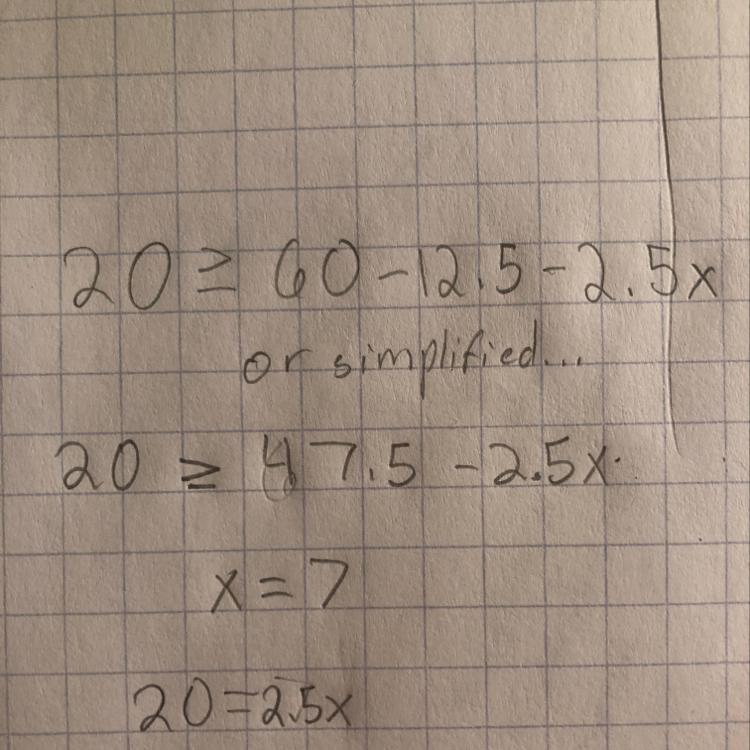 20 ≥ 60 - 12.5 - 2.5x
or simplified...
20 ≥ 47.5 - 2.5x
x = 7
20 = 2.5x